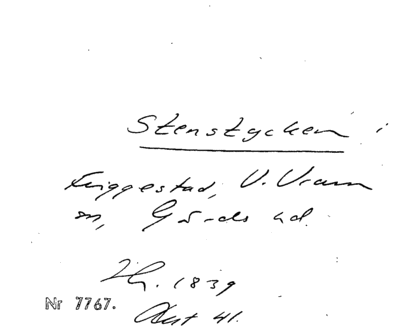 Stenstycken i
Friggestad, V. Vram
sn, Gärds hd.
1839
Nr 7767.
Akt 41.